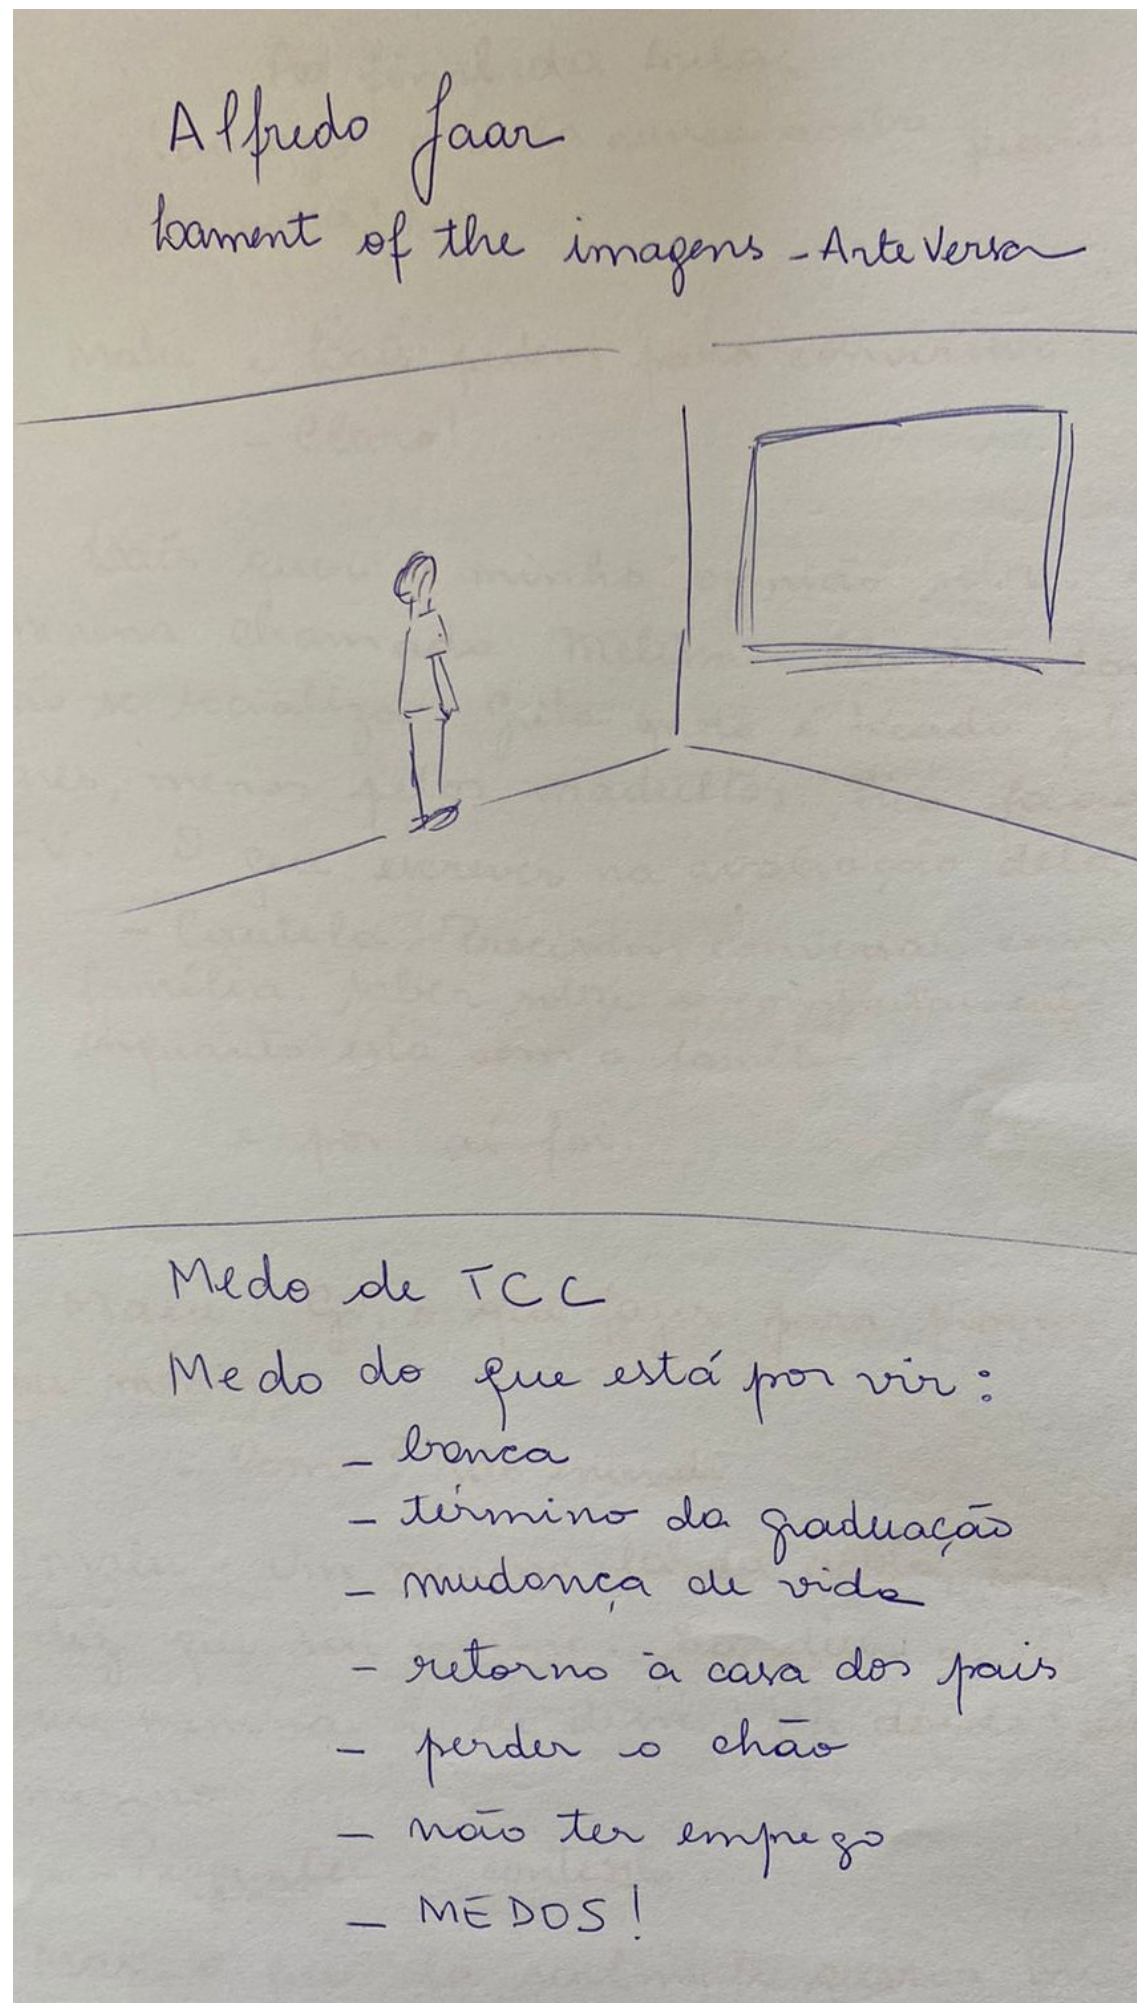 Alfredo Jaar
Lament of the imagens - Arte Versa
Medo de TCC
Medo do que está por vir:
- banca
- término da graduação
- mudança de vida
- retorno à casa dos pais
- perder o chão
- não ter emprego
- MEDOS!